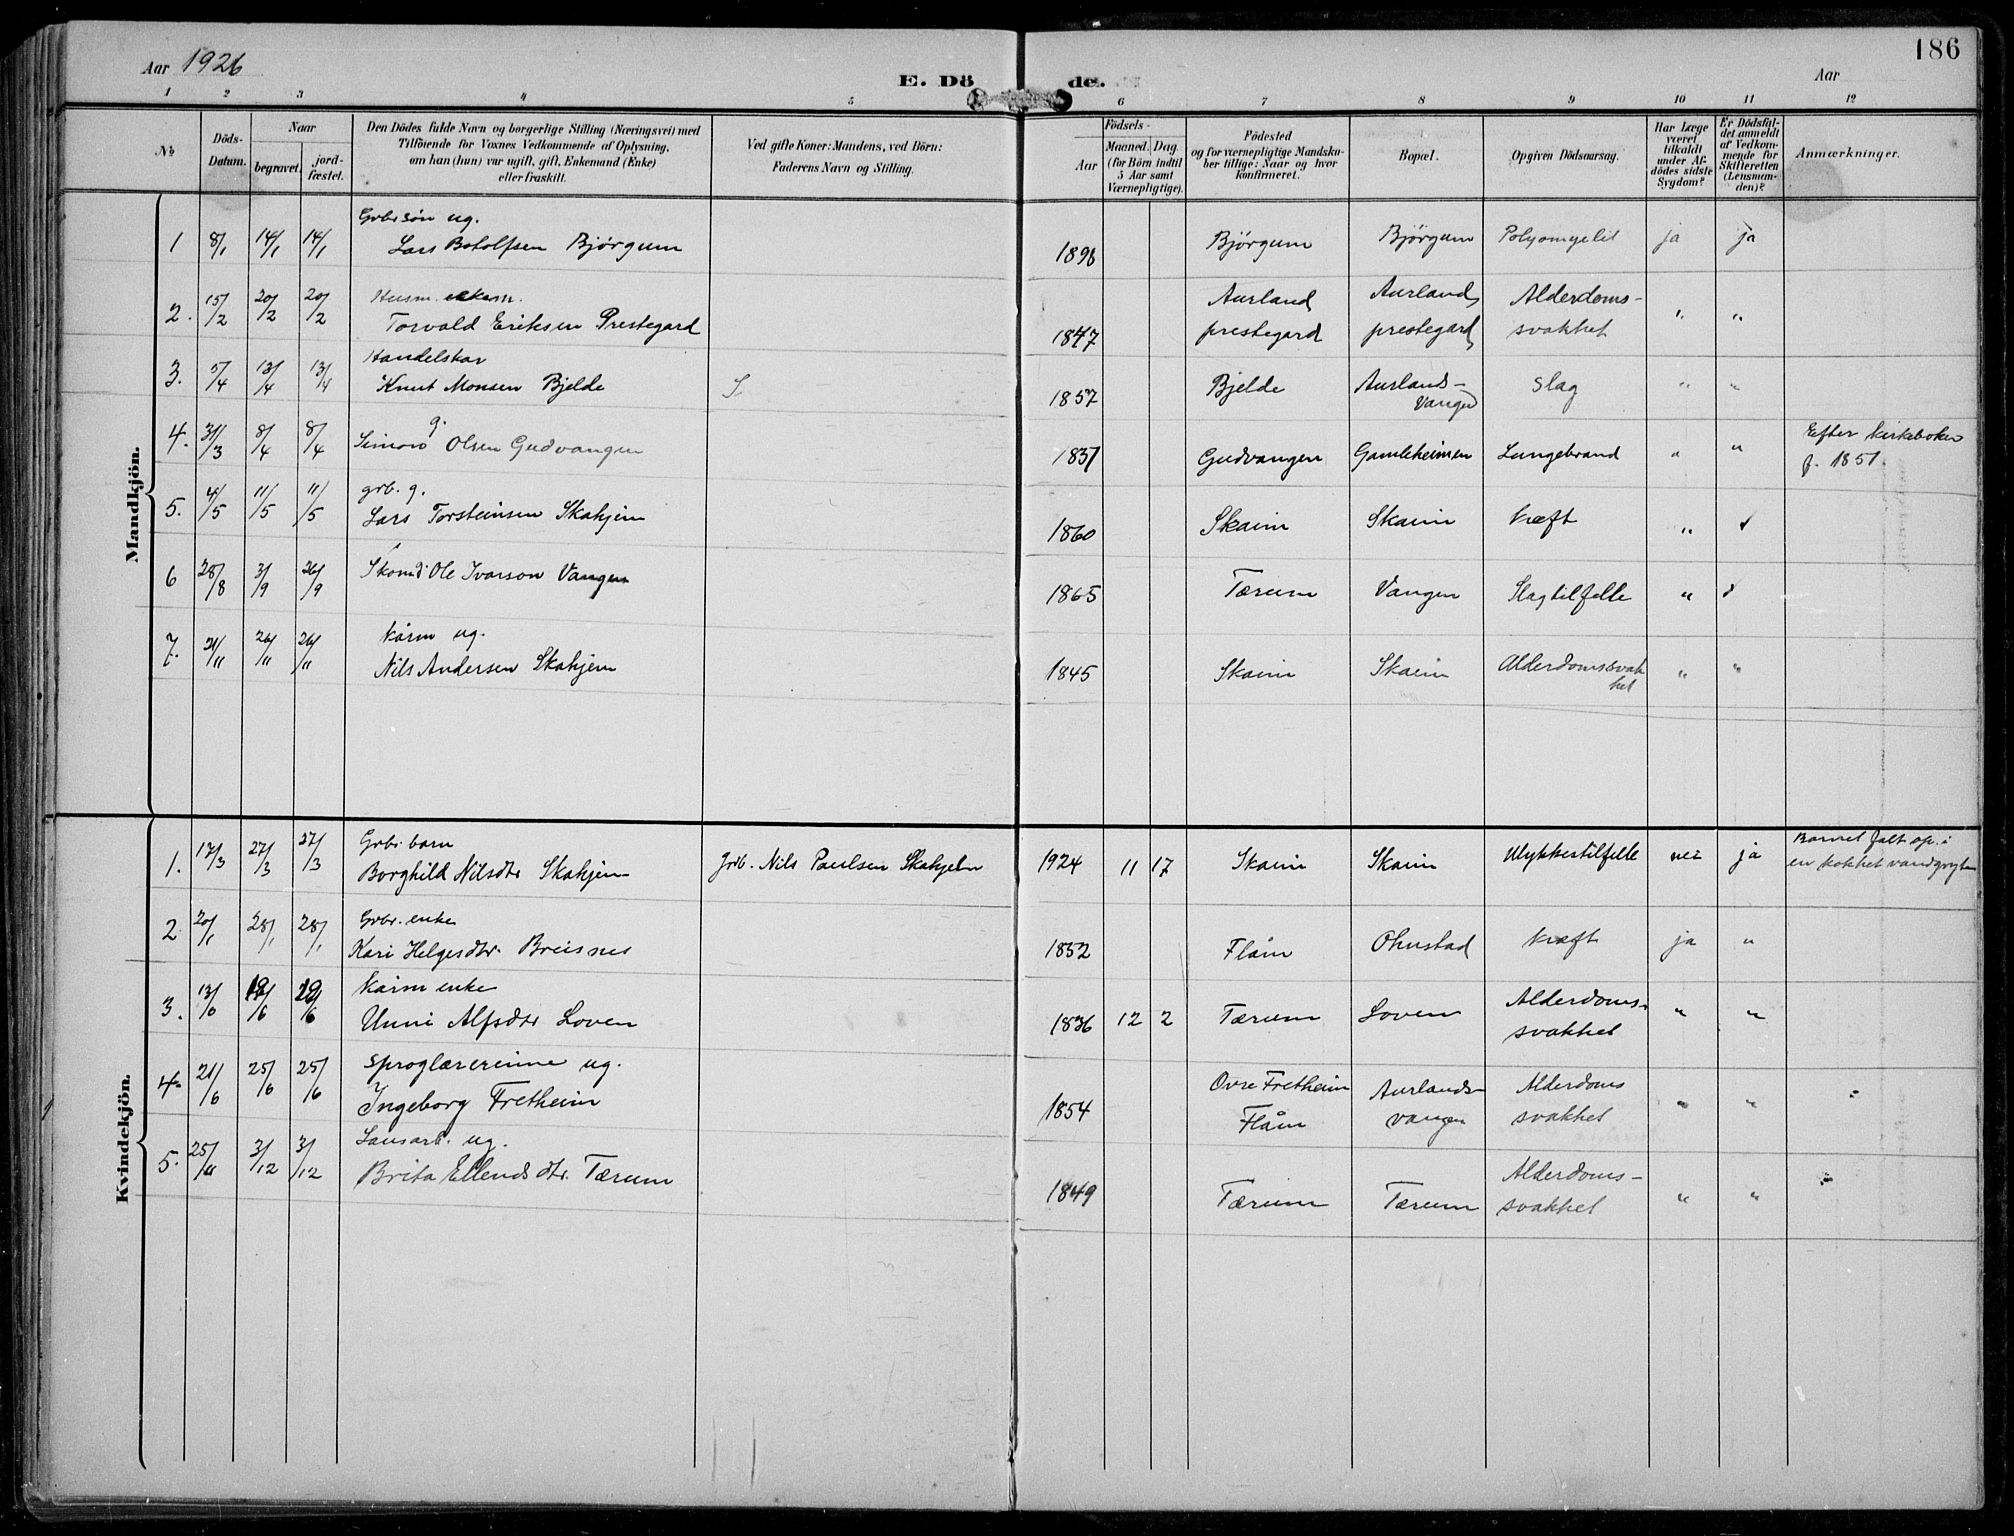 186
Aar 1926
E. Dö de.
Aar
1 2 3 4 5 6 7 8 9 10 11 12
No
Döds-Datum.
Naar
begravet.
jord-fæstet.
Den Dödes fulde Navn og borgerlige Stilling (Næringsvei) med
Tilföiende for Voxnes Vedkommende af Oplysning,
om han (hun) var ugift, gift, Enkemand (Enke)
eller fraskilt.
Ved gifte Koner: Mandens, ved Börn:
Faderens Navn og Stilling.
Födsels-
Aar
Maaned. Dag.
(for Börn indtil
5 Aar samt
Værnepligtige).
Födested
og for værnepligtige Mandsku-
ber tillige: Naar og hvor
konfirmeret.
Bopæl.
Opgiven Dödsaarsag.
Har Læge
været
tilkaldt
under Af-
dödes sidste
Sygdom?
Er Dödsfal-
det anmeldt
af Vedkom-
mende for
Skifteretten
(Lensman-
den)?
Anmærkninger.
Mandkjön.
Grbr. sön ug.
1 8/1 14/1 14/1 Lars Botolfsen Bjørgum 1898 Bjørgum Bjørgum Polyomyelit ja ja
Husm. enkem. Aurland Aurland Alderdoms-
2. 15/2 20/2 20/2 Torvald Eriksen Prestegard 1847 prestegard prestegard svakhet " "
Handelskar
3. 5/4 13/4 13/4 Knut Monsen Bjelde S. 1857 Bjelde Aurlands-Vangen Slag " "
g. Efter kirkeboken
4. 31/3 8/4 8/4 Simon Olsen Gudvangen 1837 Gudvangen Gamleheimen Lungebrand " " f. 1851.
grb. g.
5. 4/5 11/5 11/5 Lars Torsteinsen Skahjem 1860 Skaim Skaim Kræft "
6 28/8 3/9 26/9 Skom. Ole Ivarson Vangen 1865 Tærum Vangen Slagtilfelle "
Kårm ug.
7. 21/11 26/11 26/11 Nils Andersen Skahjem 1845 Skaim Skaim Alderdomssvakhet " "
Kvindekjön.
Grbr. barn Barnet falt op i
1. 17/3 27/3 27/3 Borghild Nilsdtr Skahjem Grb. Nils Paulsen Skahjem 1924 11 17 Skaim Skaim Ulykkestilfelle nei ja en kokhet vandgryte
Grbr. enke
2 20/1 28/1 28/1 Kari Helgesdtr. Breisnes 1852 Flåm Ohnstad Kræft ja "
Kårm enke Alderdoms-
3. 13/6 19/6 19/6 Unni Alfsdtr Loven 1836 12 2 Tærum Loven svakhet " "
Sproglærerinne ug. Ovre Fretheim Aurlands- Alderdoms
4. 21/6 25/6 25/6 Ingeborg Fretheim 1854 Flåm vangen svakhet " "
Lausarb. ug. Alderdoms-
5. 25/11 3/12 3/12 Brita Ellends dtr. Tærum 1849 Tærum Tærum svakhet " "